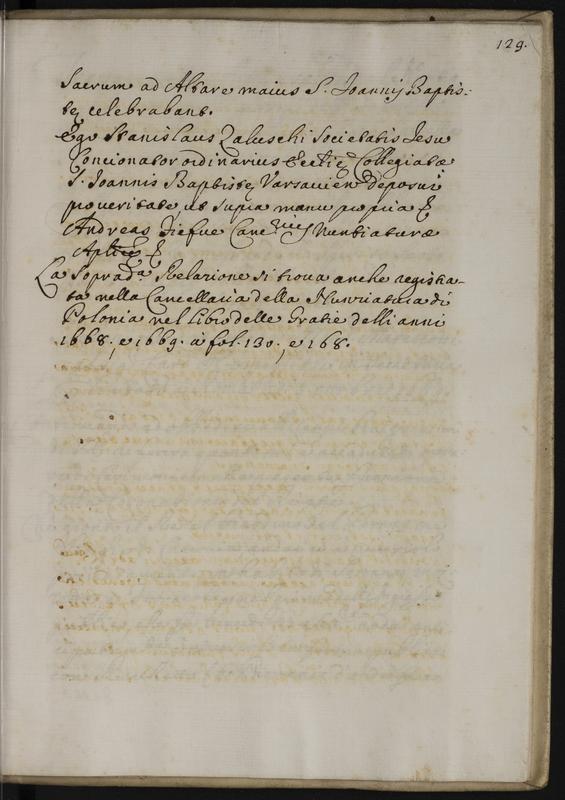 129.
Sacrum ad Altare maius S. Joannis Baptis-
tę celebrabant.
Ego Stanislaus Zaluschi Societatis Jesu
Concionator ordinarius Ecclię Collegiatæ
S. Joannis Baptistę Varsavien deposui
pro veritate ut supra manu propria
Andreas Canc rius Nuntiaturæ
Aplicę
La Sopradᵃ Relazione si trova anche registra-
ta nella Cancellaria della Nunziatura di
Polonia nel Libro delle Gratie delli anni
1668. e 1669. à fol. 130. e 168.